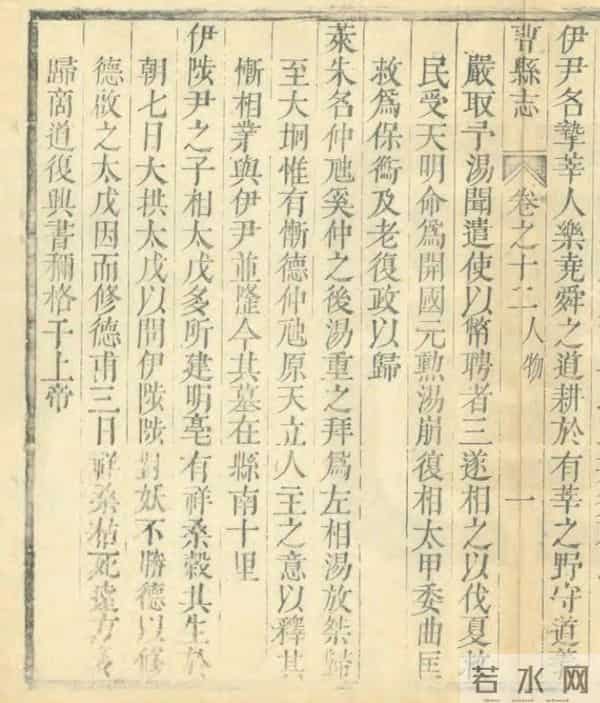 伊尹名摯莘人樂堯舜之道耕於有莘之野守道義
曹縣志 卷之十二 人物 一
嚴取予湯聞遣使以幣聘者三遂相之以伐夏救
民受天明命爲開國元勲湯崩復相太甲委曲匡
救爲保衡及老復政以歸
萊朱名仲虺奚仲之後湯重之拜爲左相湯放桀歸
至大坰惟有慚德仲虺原天立人主之意以釋其
慚相業與伊尹並隆今其墓在縣南十里
伊陟尹之子相太戊多所建明亳有祥桑榖共生於
朝七日大拱太戊以問伊陟陟對妖不勝德以修
德啟之太戊因而修德甫三日祥桑枯死遠方
歸商道復興書稱格于上帝
若水网